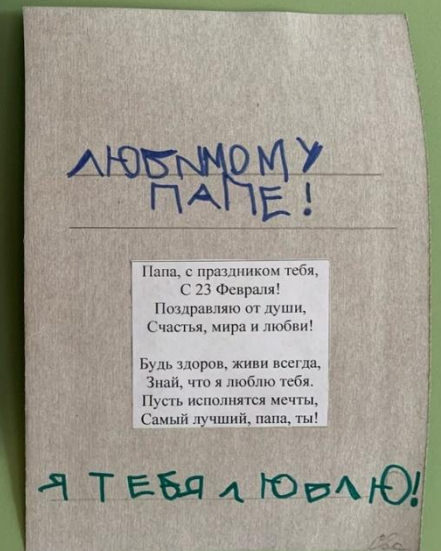 ЛЮБИМОМУ
ПАПЕ!
Папа, с праздником тебя,
С 23 Февраля!
Поздравляю от души,
Счастья, мира и любви!
Будь здоров, живи всегда,
Знай, что я люблю тебя.
Пусть исполнятся мечты,
Самый лучший, папа, ты!
Я ТЕБЯ ЛЮБЛЮ!